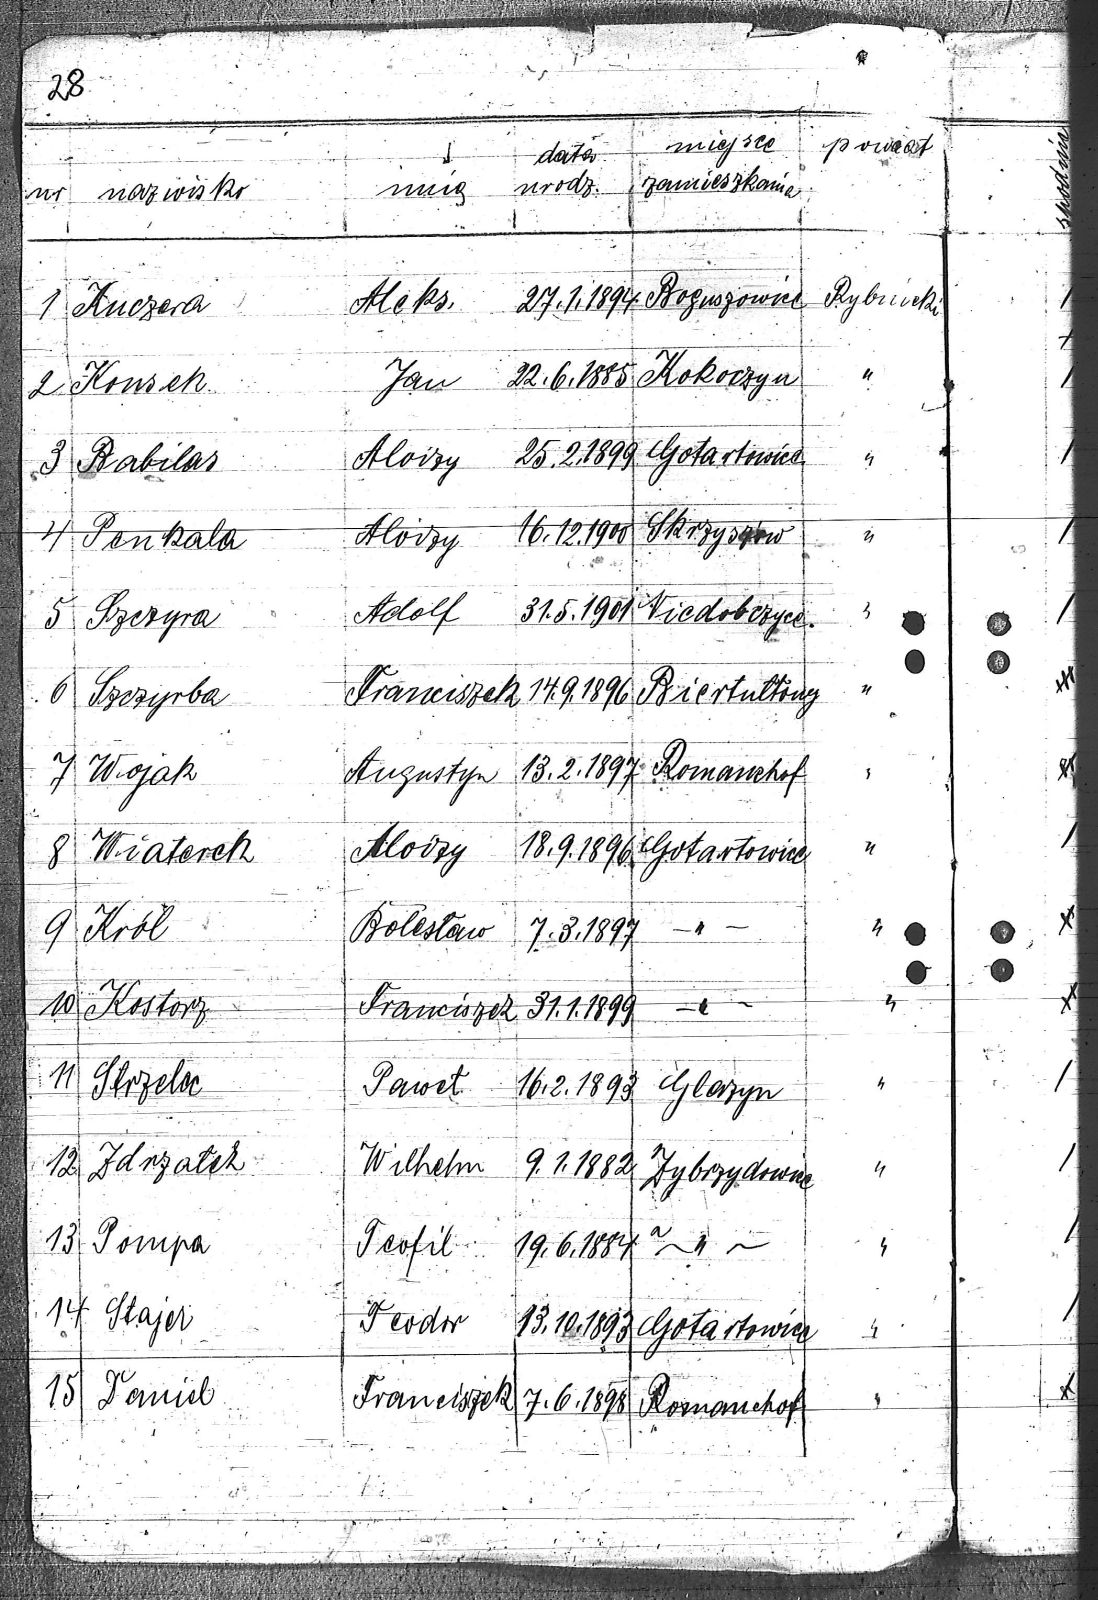 28
nr nazwisko imię data urodz. miejsce zamieszkania powiat
1 Kuczera Aleks. 27.1.1894 Boguszowice Rybnicki
2 Konsek Jan 22.6.1885 Kokoczyn "
3 Babilas Aloizy 25.2.1899 Gotartowice "
4 Penkala Aloizy 16.12.1900 Skrzyszów "
5 Szczyra Adolf 31.5.1901 Niedobczyce "
6 Szczyrba Franciszek 14.9.1896 Biertułtowy "
7 Wojak Augustyn 13.2.1897 Romanshof "
8 Wiaterek Aloizy 18.9.1896 Gotartowice "
9 Król Bolesław 7.3.1897 - " - "
10 Kostorz Franciszek 31.1.1899 - " - "
11 Strzelec Paweł 16.2.1893 Glazyn "
12 Zdrzałek Wilhelm 9.1.1882 Zybrzydowice "
13 Pompa Teofil 19.6.1884 - " - "
14 Stajer Teodor 13.10.1893 Gotartowice "
15 Daniel Franciszek 7.6.1898 Romanshof "